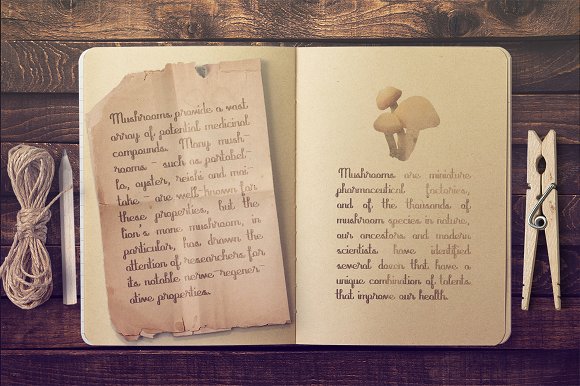 Mushrooms provide a vast
array of potential medicinal
compounds. Many mush-
rooms - such as portabel-
lo, oyster, reishi and mai-
take - are well-known for
these properties, but the
lion's mane mushroom, in
particular, has drawn the
attention of researchers for
its notable nerve-regener-
ative properties.
Mushrooms are miniature
pharmaceutical factories,
and of the thousands of
mushroom species in nature,
our ancestors and modern
scientists have identified
several dozen that have a
unique combination of talents
that improve our health.